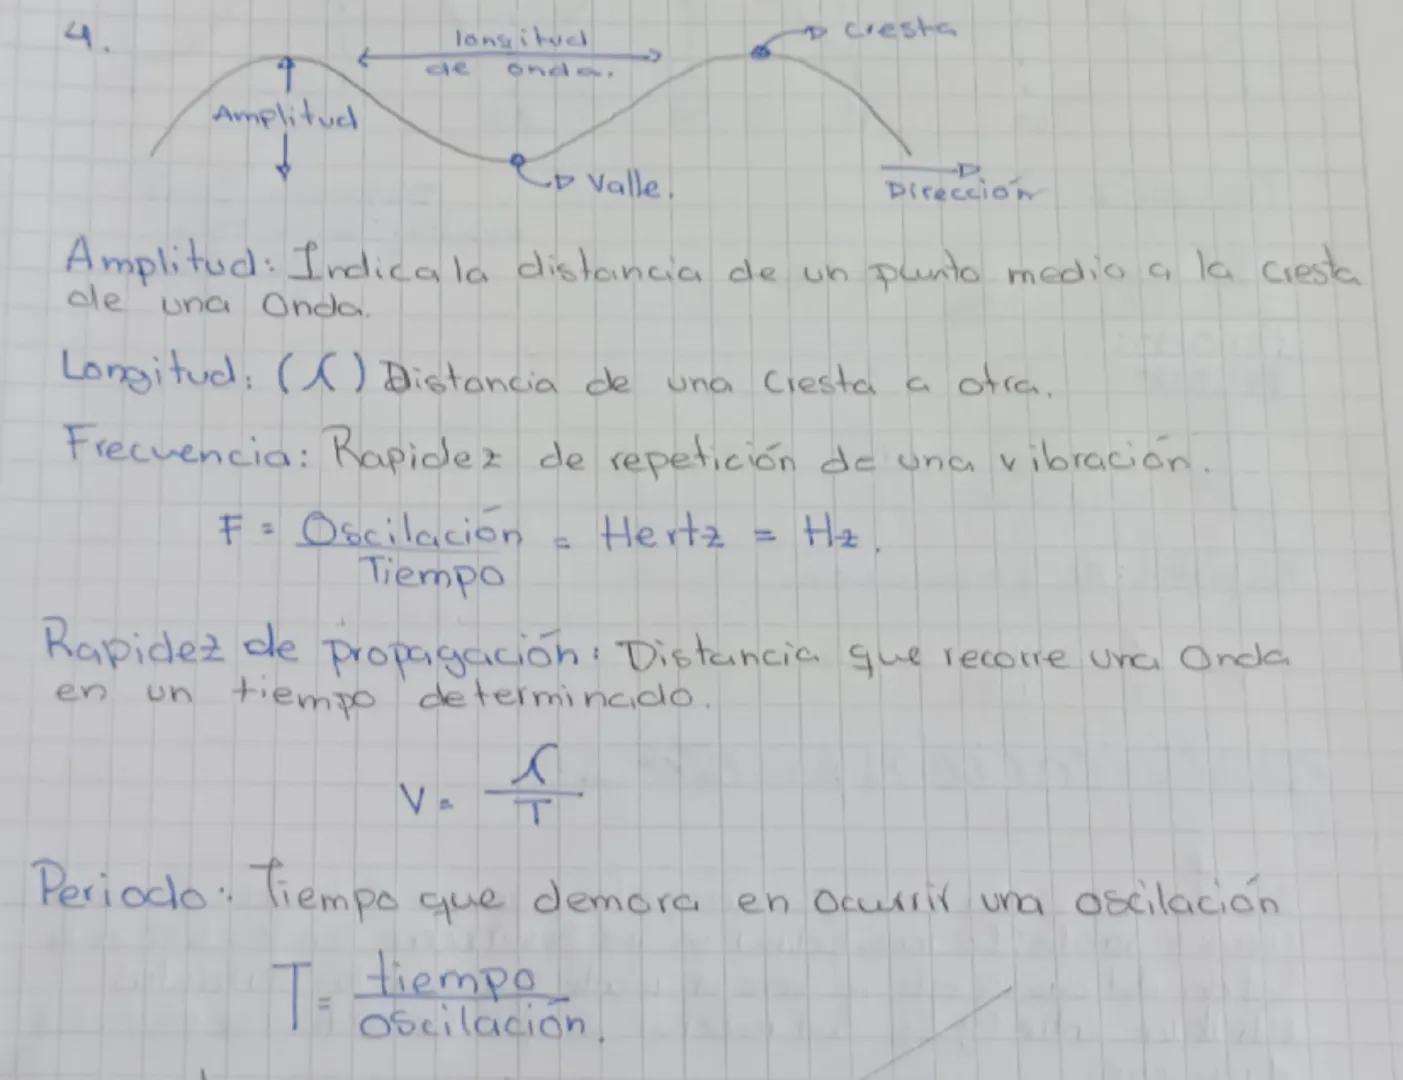 4.
longitud
de onda.
cresta
Amplitud
Valle.
Dirección
Amplitud: Indica la distancia de un punto medio a la cresta
de una Onda.
Longitud: (λ) Distancia de una cresta a otra.
Frecuencia: Rapidez de repetición de una vibración.
F = Oscilación = Hertz = Hz.
Tiempo
Rapidez de propagación: Distancia que recorre una Onda
en un tiempo determinado.
V = λ
T
Periodo: Tiempo que demora en ocurrir una oscilación
T = tiempo
oscilación.